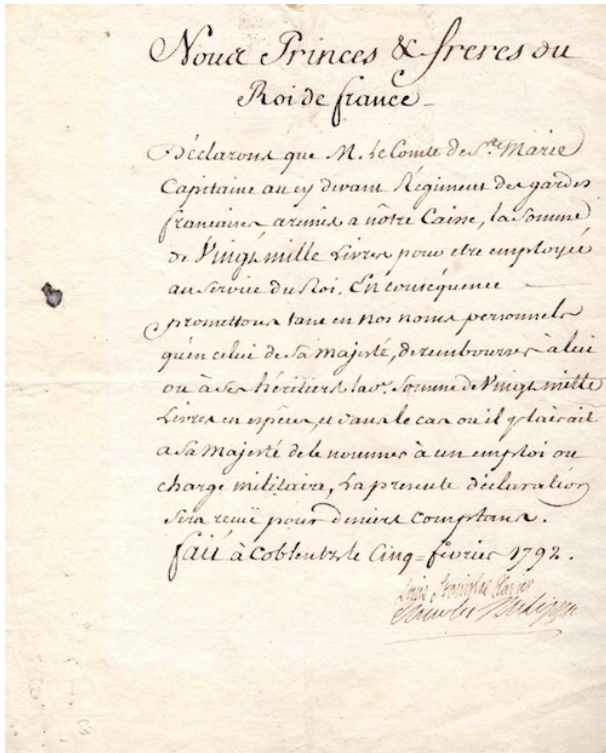 Nous Princes & freres du
Roi de france
Déclarons que M. le Comte de Ste. Marie
Capitaine au cy devant Régiment des gardes
francaises a remis a nôtre Caisse, la Somme
de Vingt mille Livres pour etre employée
au Service du Roi. En conséquence
promettons tant en nos noms personnels
qu'en celui de Sa Majesté, de rembourser à lui
ou à Ses héritiers lad. Somme de Vingt mille
Livres en espèces, et dans le cas ou il plairait
a Sa Majesté de le nommer à un emploi ou
charge militaire, la presente déclaration
Sera recüe pour deniers comptans.
fait à Coblentz le Cinq fevrier 1792.
Louis Stanislas Xavier
Charles Philippe